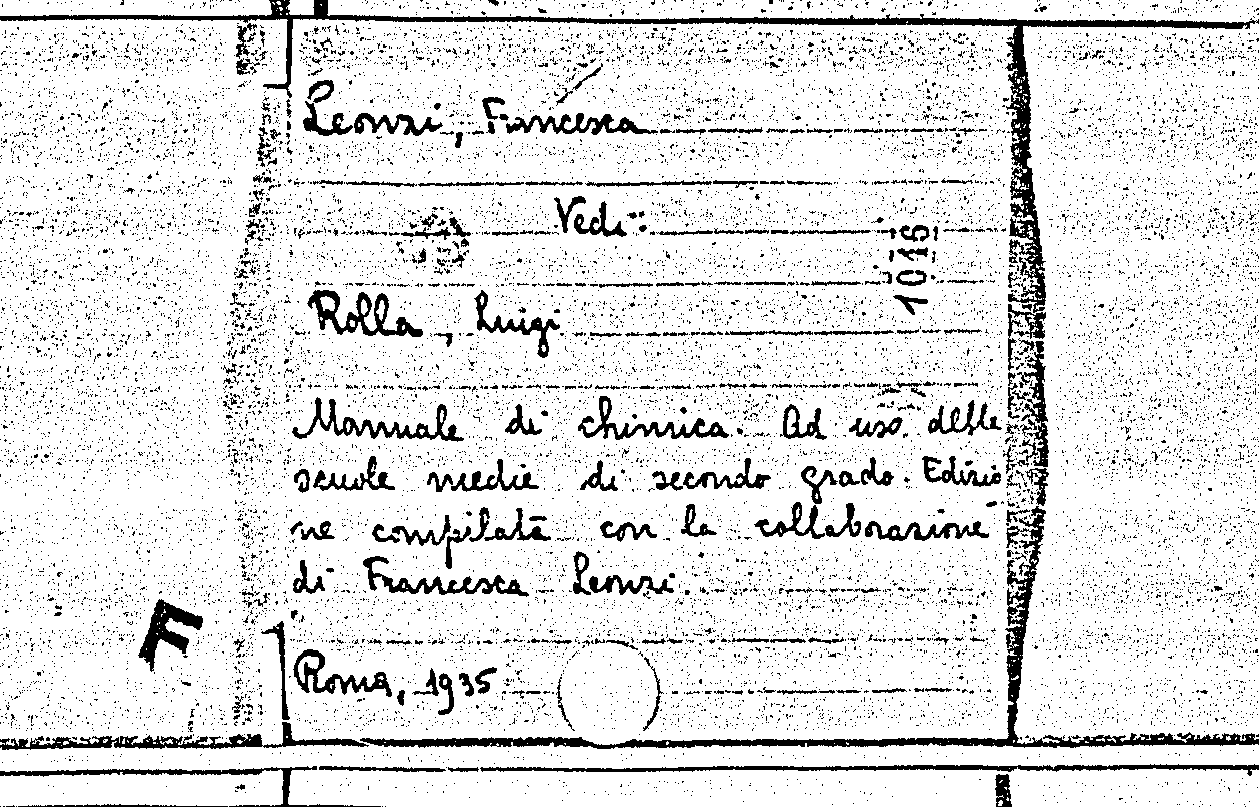 Leonzi, Francesca
Vedi:
1016
Rolla, Luigi
Manuale di chimica. Ad uso delle
scuole medie di secondo grado. Edizio
ne compilata con la collaborazione
di Francesca Leonzi.
F
Roma, 1935